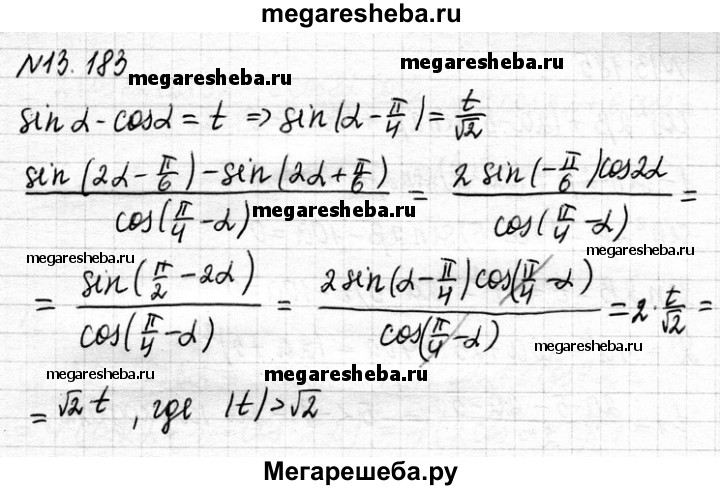 megaresheba.ru
№13.183
megaresheba.ru
megaresheba.ru
sin α - cos α = t => sin(α - π/4) = t/√2
(sin(2α - π/6) - sin(2α + π/6))/cos(π/4 - α) = (2 sin(-π/6) cos 2α)/cos(π/4 - α) =
megaresheba.ru
megaresheba.ru
megaresheba.ru
= sin(π/2 - 2α)/cos(π/4 - α) = (2 sin(α - π/4) cos(π/4 - α))/cos(π/4 - α) = 2 · t/√2 =
megaresheba.ru
megaresheba.ru
megaresheba.ru
= √2 t, где |t| > √2
Мегарешеба.ру